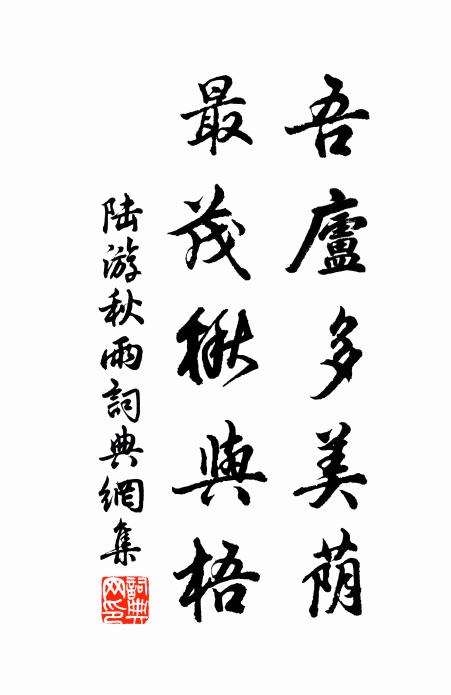 吾廬多美荫
最茂楸與梧
陆游秋雨詞典網集
詞典网印